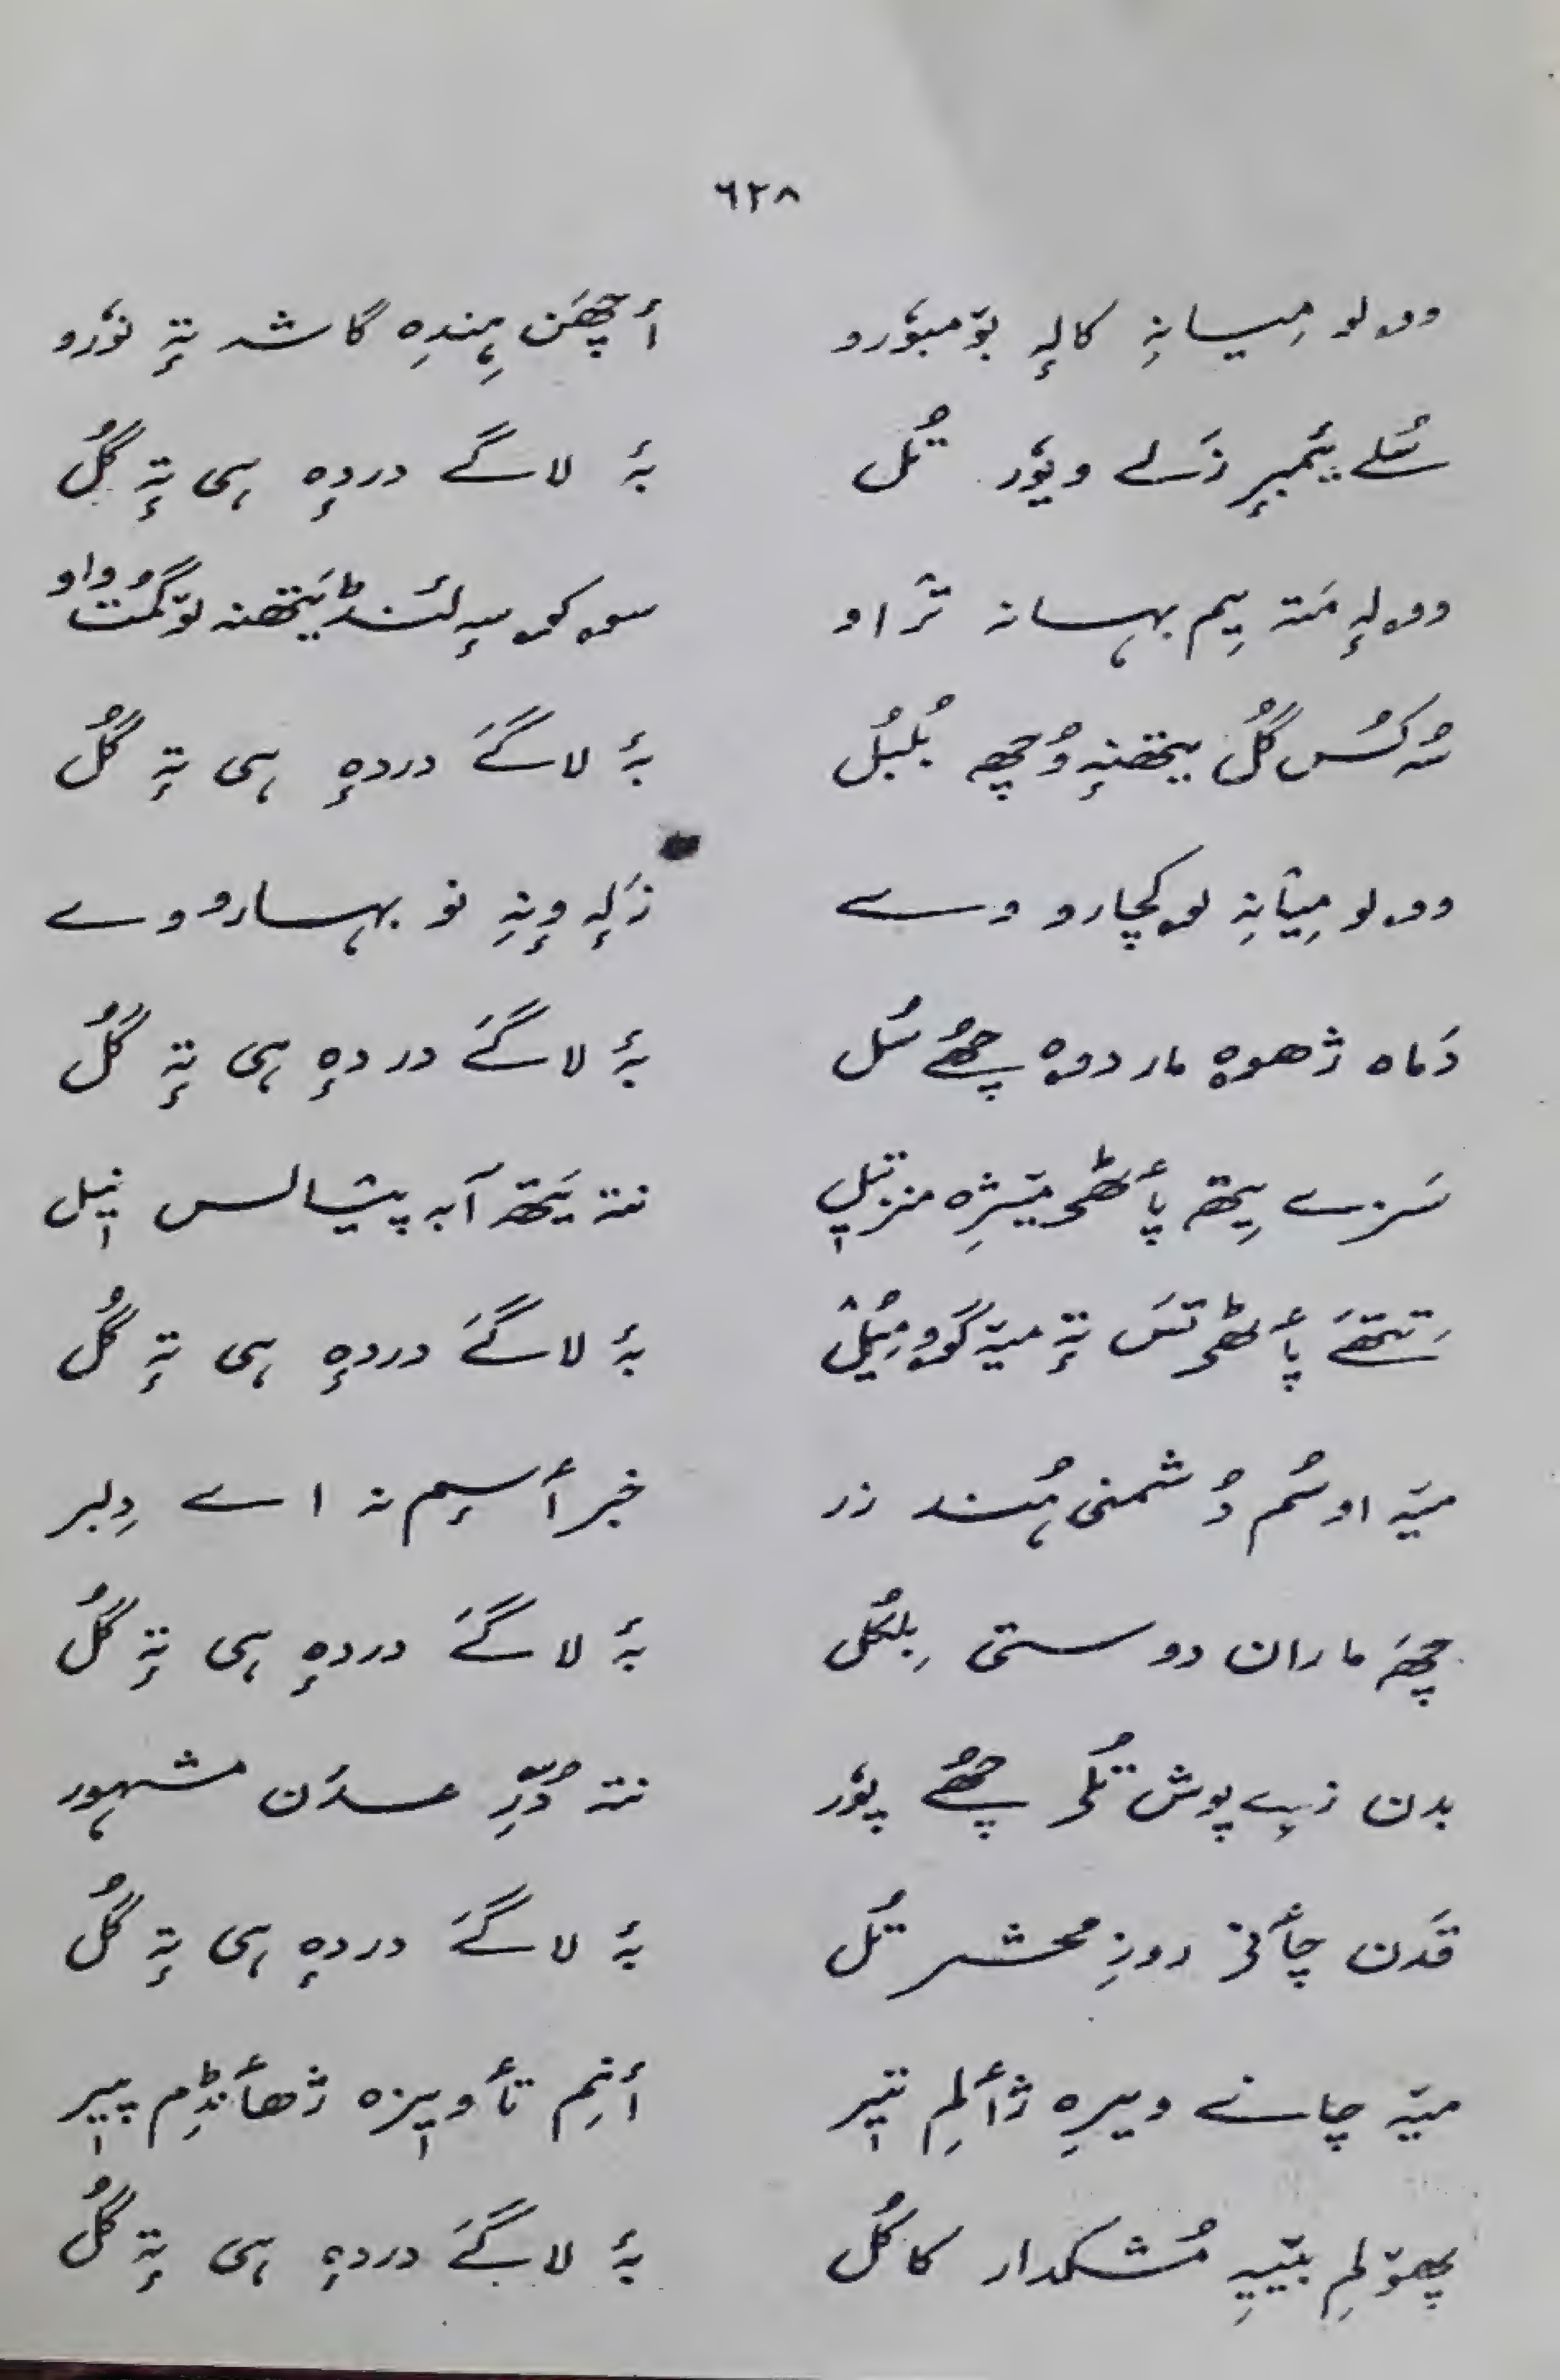 ٦٢٨
وو۔لو مِیسانِہ کالہِ بۆمبوٗرو أچھَن ہِنٛدِہ گاشہ تہٕ نوٗرو
سُلے یمبٕر زَلے ووٚر تُل بہٕ لاگے دردہٕ ہی تہٕ گُل
وو۔لہٕ مَتہ یِم بہانہ ترٛاو
سُہ کُس گُل یتھنہٕ وُچھ بُلبُل بہٕ لاگےَ دردہٕ ہی تہٕ گُل
وو۔لو مِیٲنِہ لۄکچارو وے زَلہٕ وٕنہِ نو بہارو وے
دَماہ ژھوہ مار دوہ چھُے سُل بہٕ لاگےَ دردہٕ ہی تہٕ گُل
سَنزے یِتھ پأٹھۍ میٚژِہ منز تیٖل نتہ یَتھ آبہ پیٛالس نیٖل
تِتھَے پأٹھۍ تَس تہٕ میہٚ گوٚو مِیُل بہٕ لاگےَ دردہٕ ہی تہٕ گُل
میہٚ اوسُم دُشمنی ہُنٛد زر خبر أسٕم نہ اے دِلبر
چھَہ ماران دوستی بِلکُل بہٕ لاگےَ دردہٕ ہی تہٕ گُل
بدن زیے پوش تُلۍ چھُے پوٗر نتہ دُرِّ عدَن مشہور
قَدَن چأنۍ روزِ محشر تُل بہٕ لاگےَ دردہٕ ہی تہٕ گُل
میہٚ چانے ویرِہ ژألِم تیٖر أنِم تأویٖزہ ژھأنڈِم پیٖر
پھۆلِم بیٚیہِ مُشکدار کاکُل بہٕ لاگےَ دردہٕ ہی تہٕ گُل